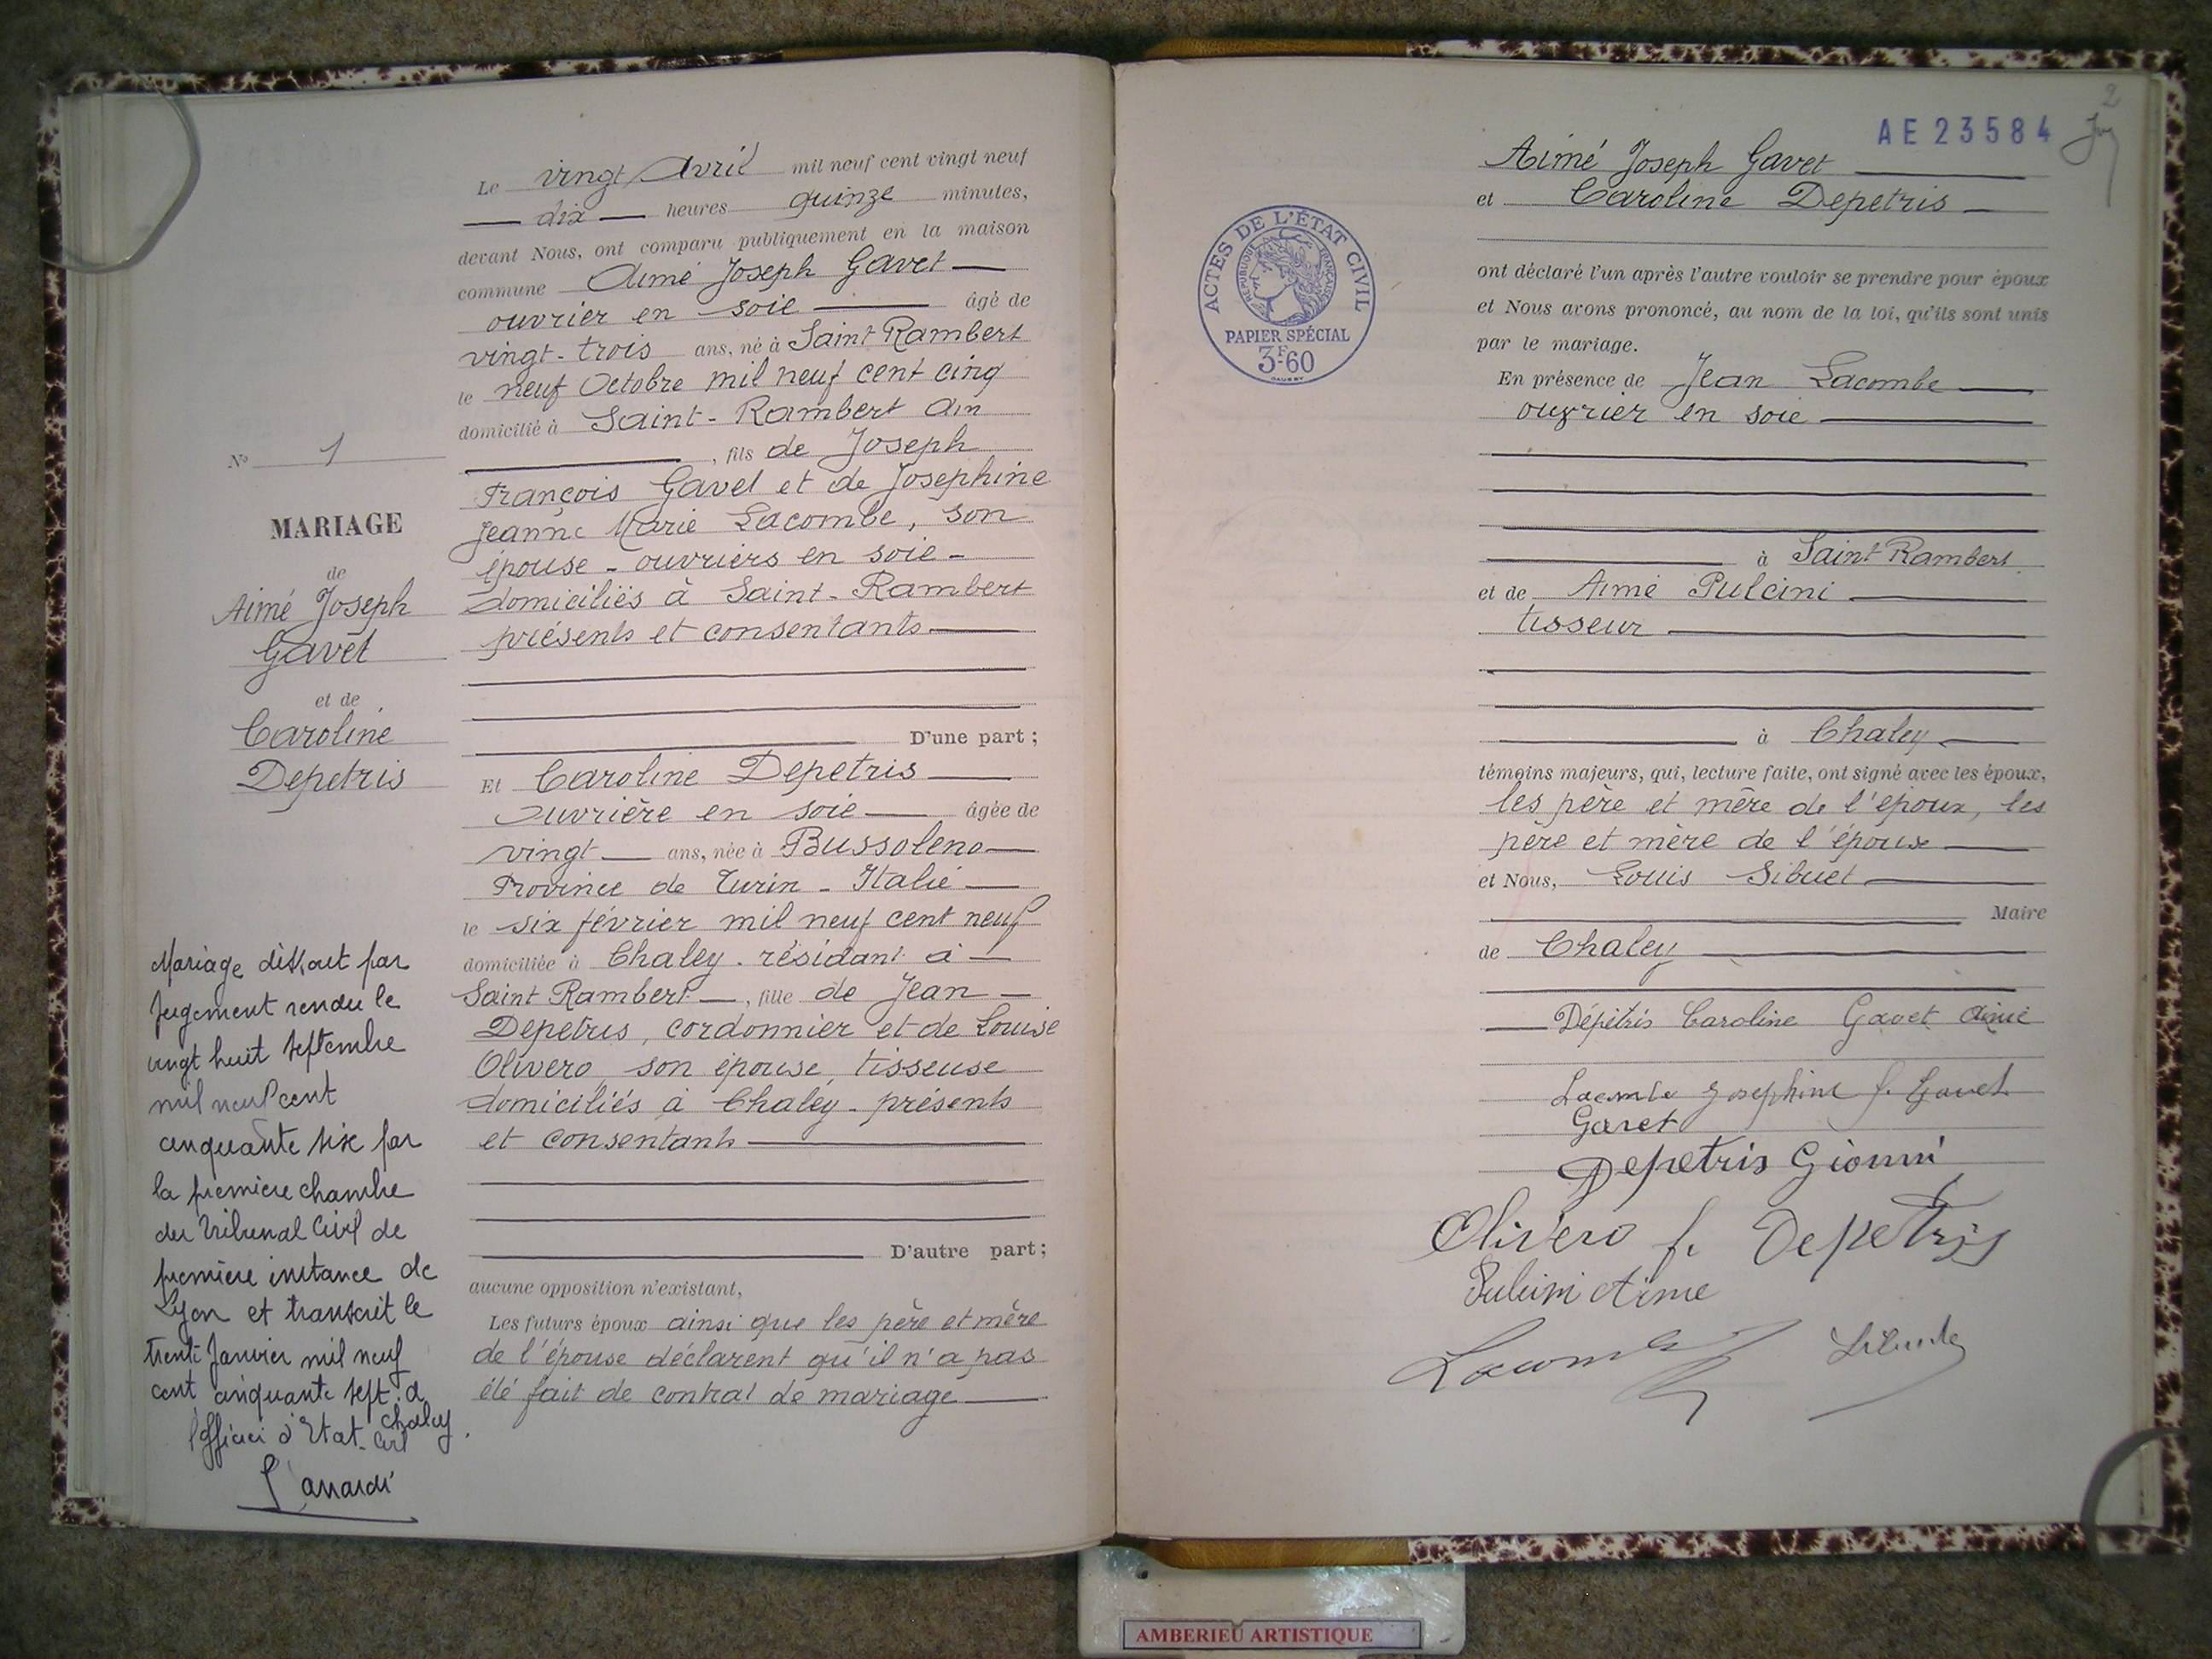 Le vingt Avril mil neuf cent vingt neuf
dix heures quinze minutes,
devant Nous, ont comparu publiquement en la maison
commune Aimé Joseph Gavet
ouvrier en soie âgé de
vingt-trois ans, né à Saint Rambert
le neuf Octobre mil neuf cent cinq
domicilié à Saint-Rambert Ain
, fils de Joseph
François Gavet et de Josephine
Jeanne Marie Lacombe, son
épouse - ouvriers en soie -
domiciliés à Saint-Rambert
présents et consentants
D'une part;
Et Caroline Depetris
ouvrière en soie âgée de
vingt ans, née à Bussoleno
Province de Turin - Italie
le six février mil neuf cent neuf
domiciliée à Chaley - résidant à
Saint Rambert, fille de Jean
Depetris, cordonnier et de Louise
Olivero, son épouse, tisseuse
domiciliés à Chaley - présents
et consentants
D'autre part;
aucune opposition n'existant,
Les futurs époux ainsi que les père et mère
de l'épouse déclarent qu'il n'a pas
été fait de contrat de mariage
No 1
MARIAGE
de
Aimé Joseph
Gavet
et de
Caroline
Depetris
Mariage dissout par
jugement rendu le
vingt huit septembre
mil neuf cent
cinquante six par
la première chambre
du Tribunal Civil de
première instance de
Lyon et transcrit le
trente Janvier mil neuf
cent cinquante sept à
Chaley.
l'officier d'Etat-Civil
2
AE 23584
ACTES DE L'ÉTAT CIVIL
RÉPUBLIQUE FRANÇAISE
PAPIER SPÉCIAL
3F60
Aimé Joseph Gavet
et Caroline Depetris
ont déclaré l'un après l'autre vouloir se prendre pour époux
et Nous avons prononcé, au nom de la loi, qu'ils sont unis
par le mariage.
En présence de Jean Lacombe
ouvrier en soie
à Saint Rambert
et de Aimé Pulcini
tisseur
à Chaley
témoins majeurs, qui, lecture faite, ont signé avec les époux,
les père et mère de l'époux, les
père et mère de l'épouse
et Nous, Louis Sibuet
Maire
de Chaley
Dépétris Caroline Gavet Aimé
Lacombe Josephine f. Gavet
Gavet
Depetris Gioanni
Olivero f. Depetris
Pulcini Aime
Lacombe
AMBERIEU ARTISTIQUE